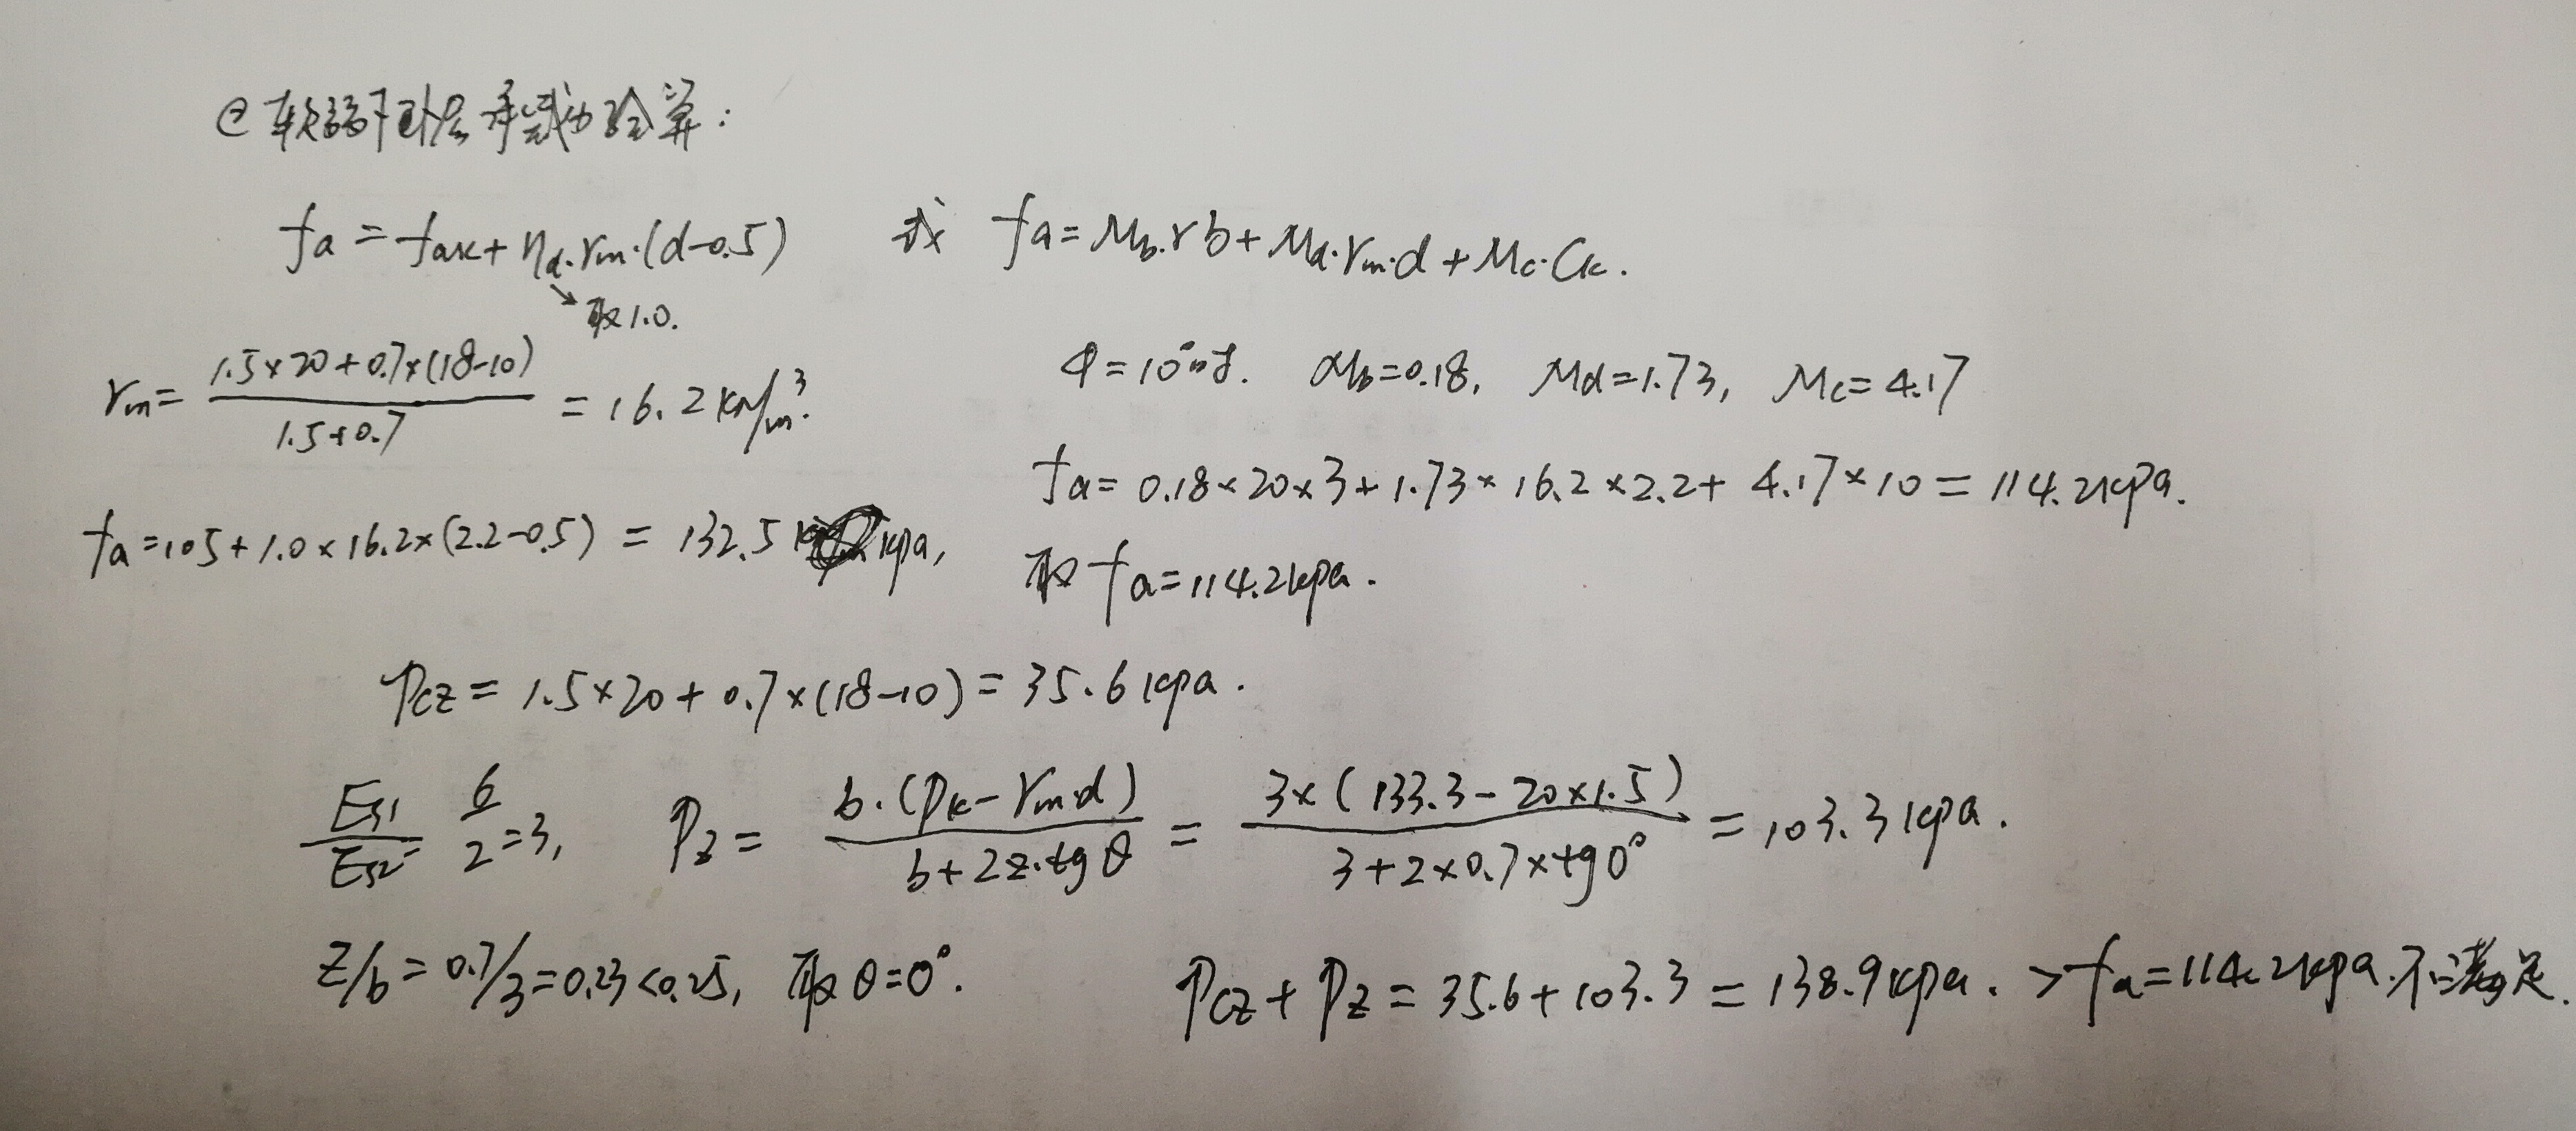 ② 软弱下卧层承载力验算:
fa = fak + ηd·rm·(d-0.5) 或 fa = Mb·rb + Md·rm·d + Mc·Ck.
取1.0.
rm = (1.5×20+0.7×(18-10))/(1.5+0.7) = 16.2 kN/m³.
φ=10°时. Mb=0.18, Md=1.73, Mc=4.17
fa = 0.18×20×3 + 1.73×16.2×2.2 + 4.17×10 = 114.2kpa.
fa = 105 + 1.0×16.2×(2.2-0.5) = 132.5 kpa,
取 fa = 114.2kpa.
Pcz = 1.5×20 + 0.7×(18-10) = 35.6 kpa.
Es1/Es2 = 6/2 = 3, Pz = b·(Pk-rm·d)/(b+2z·tgθ) = 3×(133.3-20×1.5)/(3+2×0.7×tg0°) = 103.3 kpa.
Z/b = 0.7/3 = 0.23 < 0.25, 取θ=0°. Pcz + Pz = 35.6 + 103.3 = 138.9kpa. > fa = 114.2kpa. 不满足.